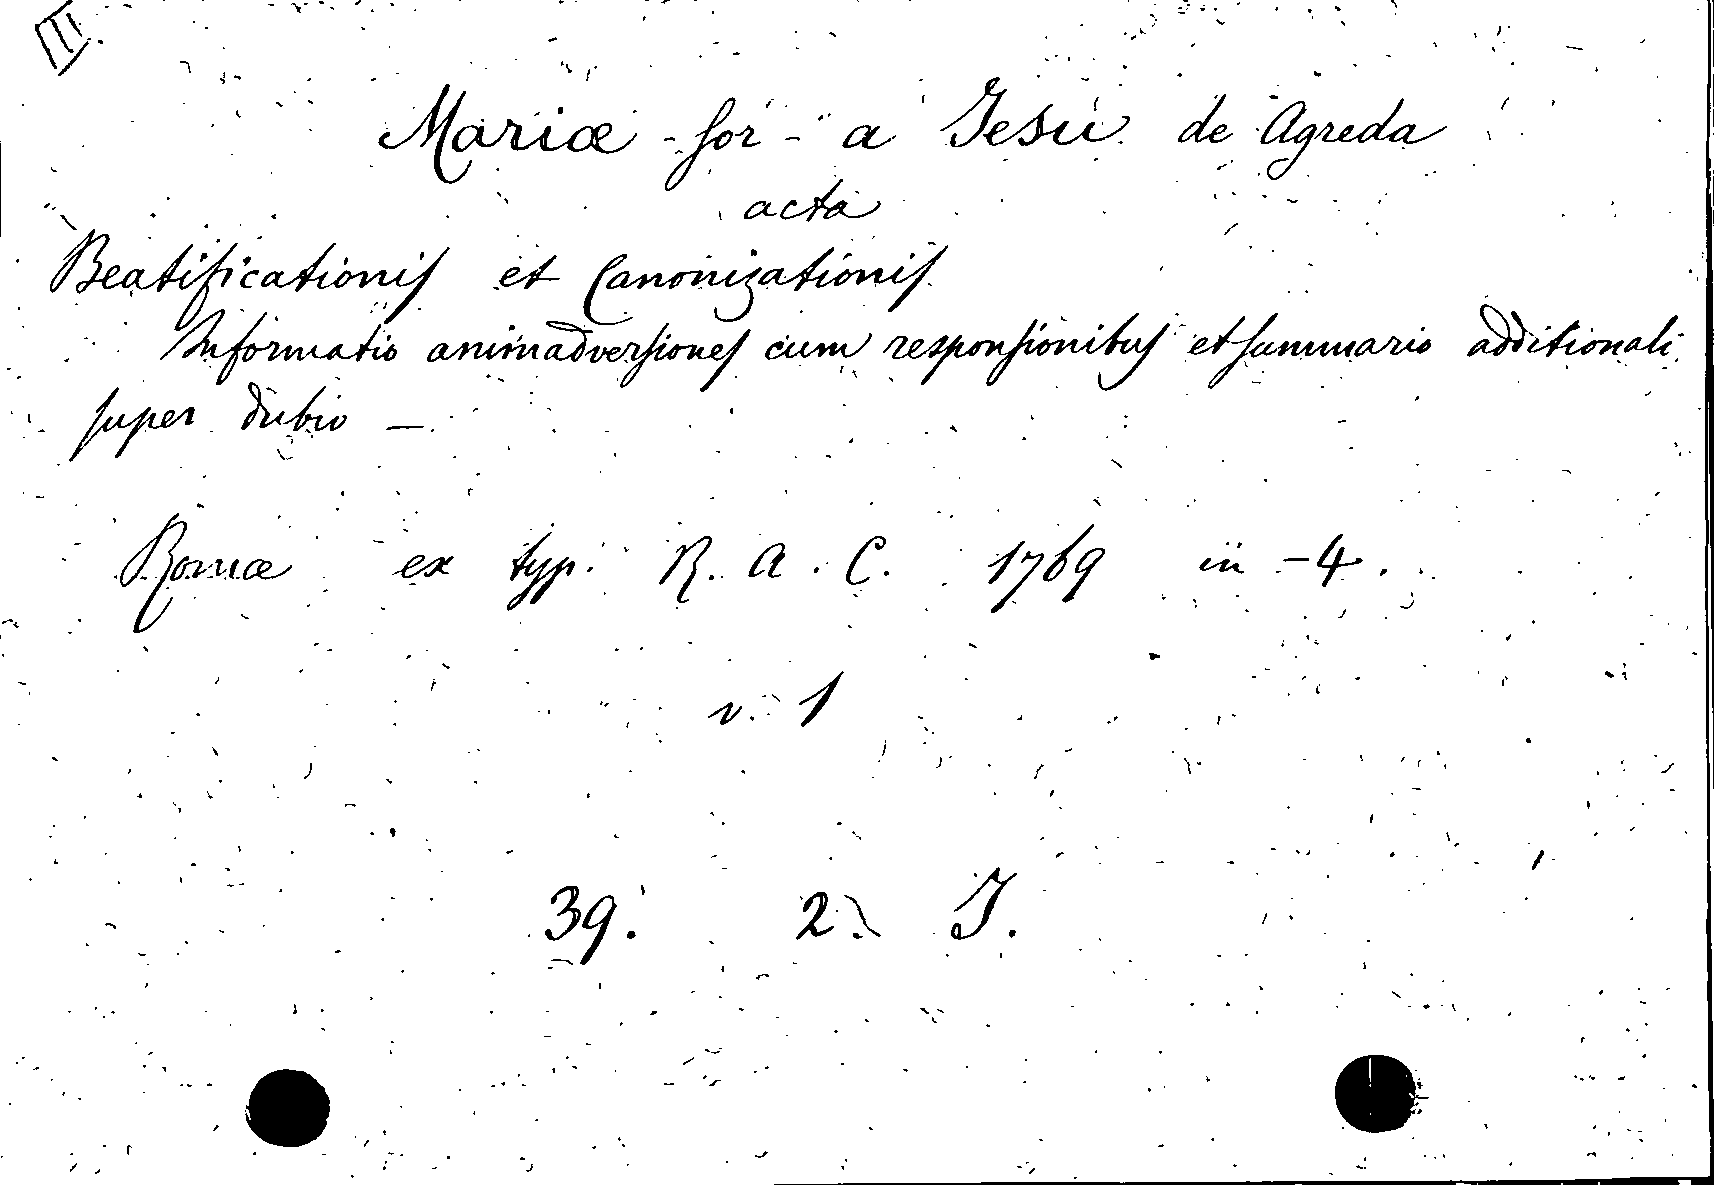 III.
Mariæ - sor - a Jesu de Agreda
acta
Beatificationis et Canonizationis
Informatio animadversiones cum responsionibus et summario additionali
super dubio —
Romæ ex typ. R. A. C. 1769 in - 4.
v. 1
39. 2. J.